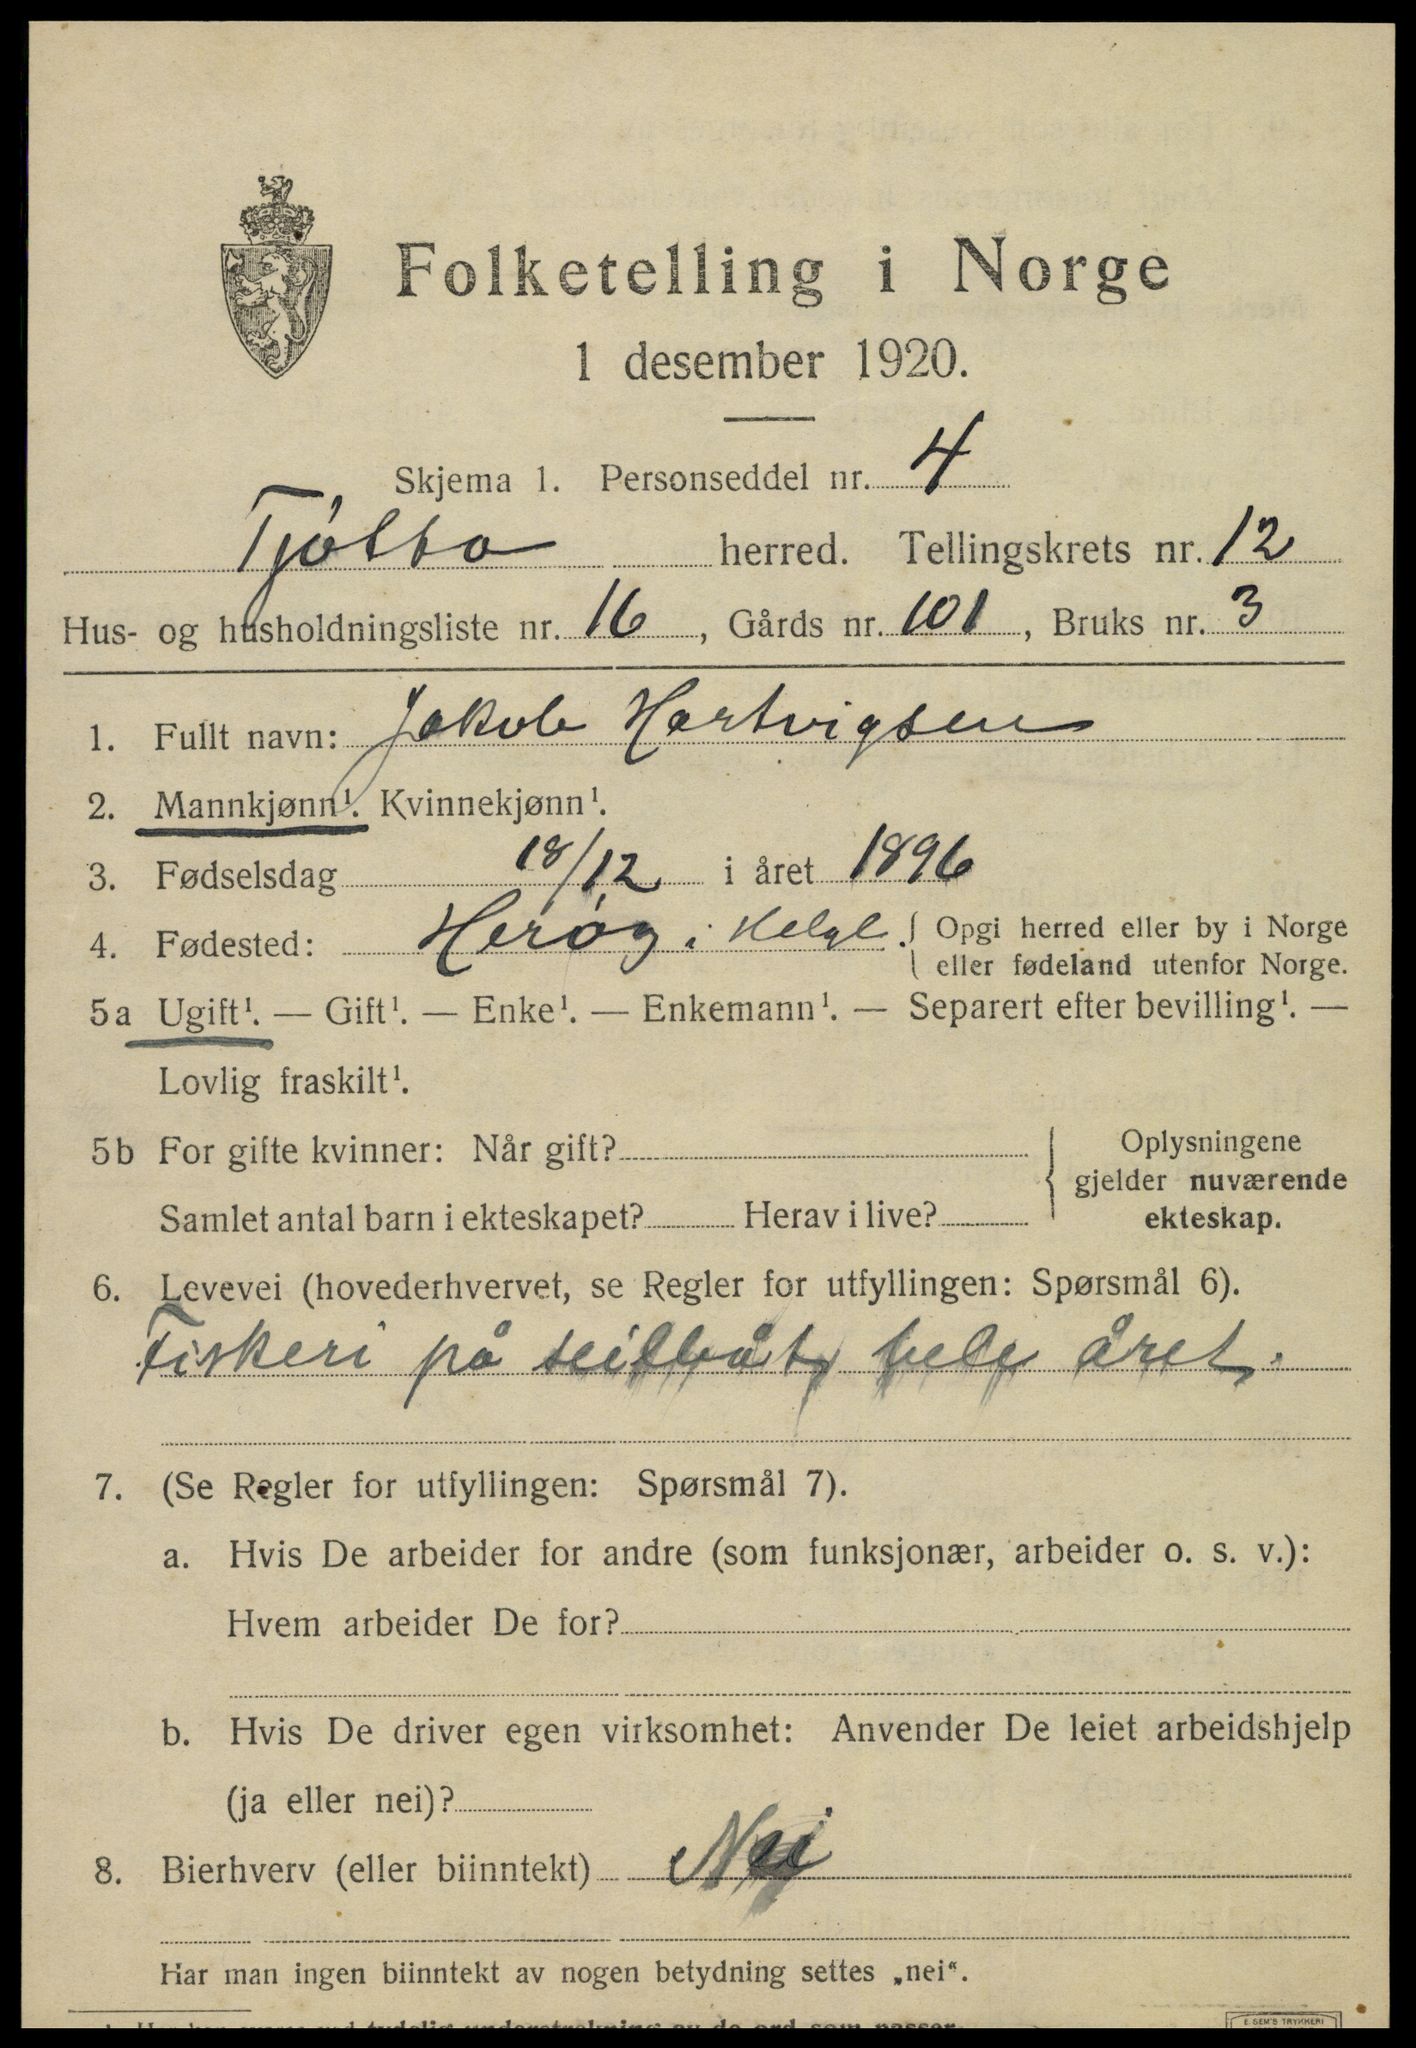 Folketelling i Norge
1 desember 1920.
Skjema 1. Personseddel nr. 4
Tjøtta herred. Tellingskrets nr. 12
Hus- og husholdningsliste nr. 16, Gårds nr. 101, Bruks nr. 3
1. Fullt navn: Jakob Hartvigsen
2. Mannkjønn¹. Kvinnekjønn¹.
3. Fødselsdag 18/12 i året 1896
4. Fødested: Herøy i Helgl. { Opgi herred eller by i Norge
eller fødeland utenfor Norge.
5a Ugift¹. — Gift¹. — Enke¹. — Enkemann¹. — Separert efter bevilling¹. —
Lovlig fraskilt¹.
5b For gifte kvinner: Når gift?
Samlet antal barn i ekteskapet? Herav i live?
Oplysningene
gjelder nuværende
ekteskap.
6. Levevei (hovederhvervet, se Regler for utfyllingen: Spørsmål 6).
Fiskeri på seilbåt, hele året.
7. (Se Regler for utfyllingen: Spørsmål 7).
a. Hvis De arbeider for andre (som funksjonær, arbeider o. s. v.):
Hvem arbeider De for?
b. Hvis De driver egen virksomhet: Anvender De leiet arbeidshjelp
(ja eller nei)?
8. Bierhverv (eller biinntekt) Nei
Har man ingen biinntekt av nogen betydning settes „nei“.
tydelig understrekning av de ord som passer.